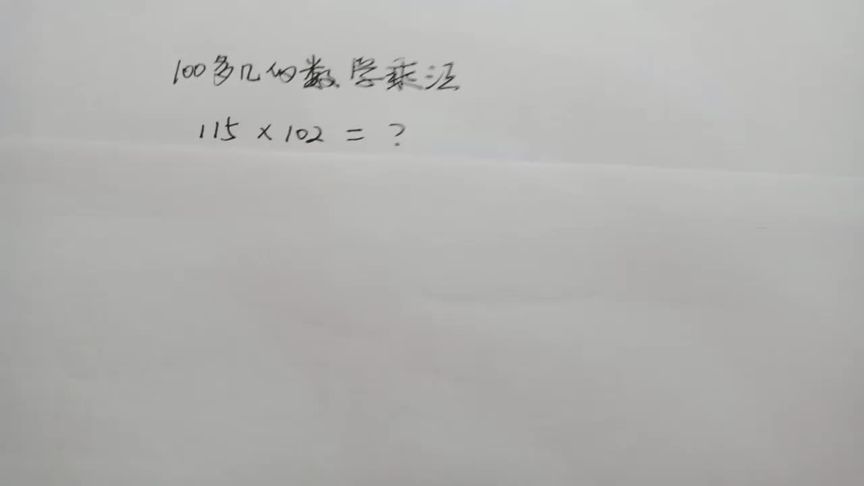 100多几的数学乘法
115×102=?